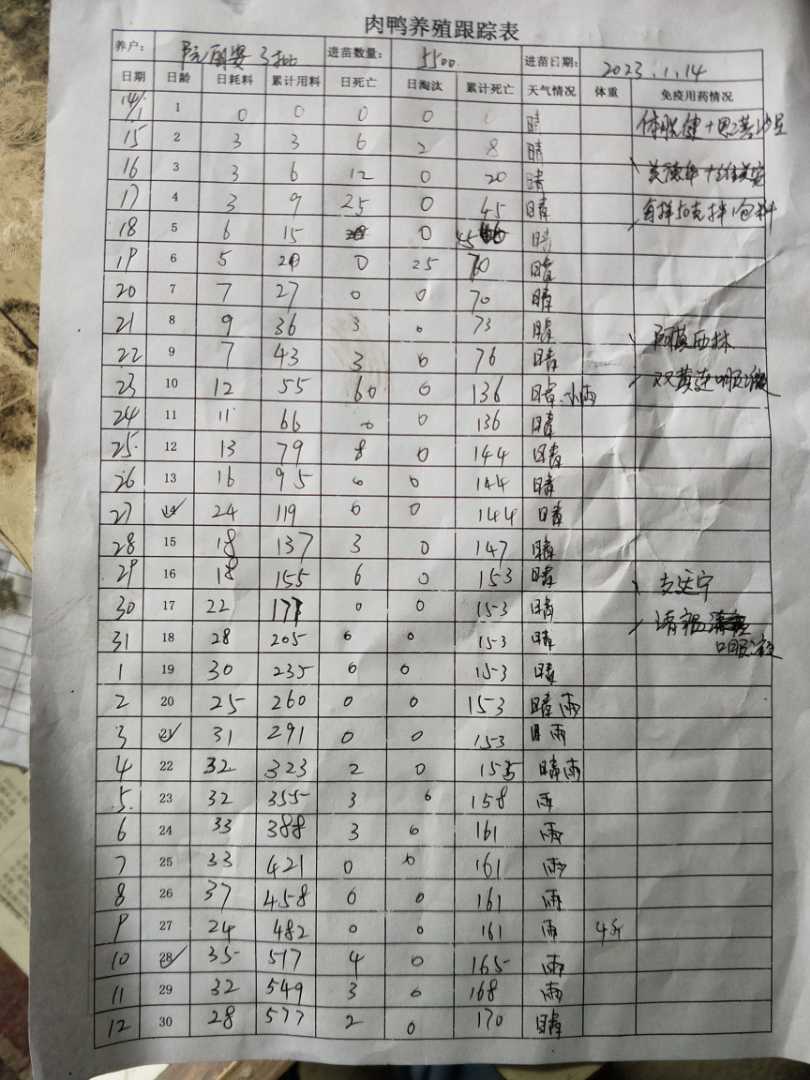 肉鸭养殖跟踪表
养户: 3批 进苗数量: 5500. 进苗日期: 2023.1.14
日期 日龄 日耗料 累计用料 日死亡 日淘汰 累计死亡 天气情况 体重 免疫用药情况
14/1 1 0 0 0 0 晴
15 2 3 3 6 2 8 晴
16 3 3 6 12 0 20 晴
17 4 3 9 25 0 45 晴 每样50克拌1包料
18 5 6 15 0 45 晴
19 6 5 20 0 25 70 晴
20 7 7 27 0 0 70 晴
21 8 9 36 3 0 73 晴 阿莫西林
22 9 7 43 3 0 76 晴
23 10 12 55 60 0 136 晴.小雨 双黄连口服液
24 11 11 66 0 0 136 晴
25. 12 13 79 8 0 144 晴
26 13 16 95 0 0 144 晴
27 14 24 119 0 0 144 晴
28 15 18 137 3 0 147 晴
29 16 18 155 6 0 153 晴
30 17 22 177 0 0 153 晴
31 18 28 205 0 0 153 晴 口服液
1 19 30 235 0 0 153 晴
2 20 25 260 0 0 153 晴雨
3 21 31 291 0 0 153 雨
4 22 32 323 2 0 155 晴雨
5. 23 32 355 3 0 158 雨
6 24 33 388 3 0 161 雨
7 25 33 421 0 0 161 雨
8 26 37 458 0 0 161 雨
9 27 24 482 0 0 161 雨 4斤
10 28 35 517 4 0 165 雨
11 29 32 549 3 0 168 雨
12 30 28 577 2 0 170 晴